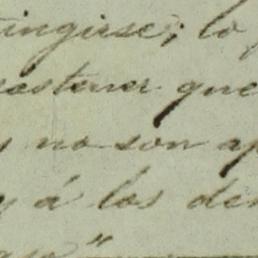 tingirse; lo
sostener que
no son ap
y á los de